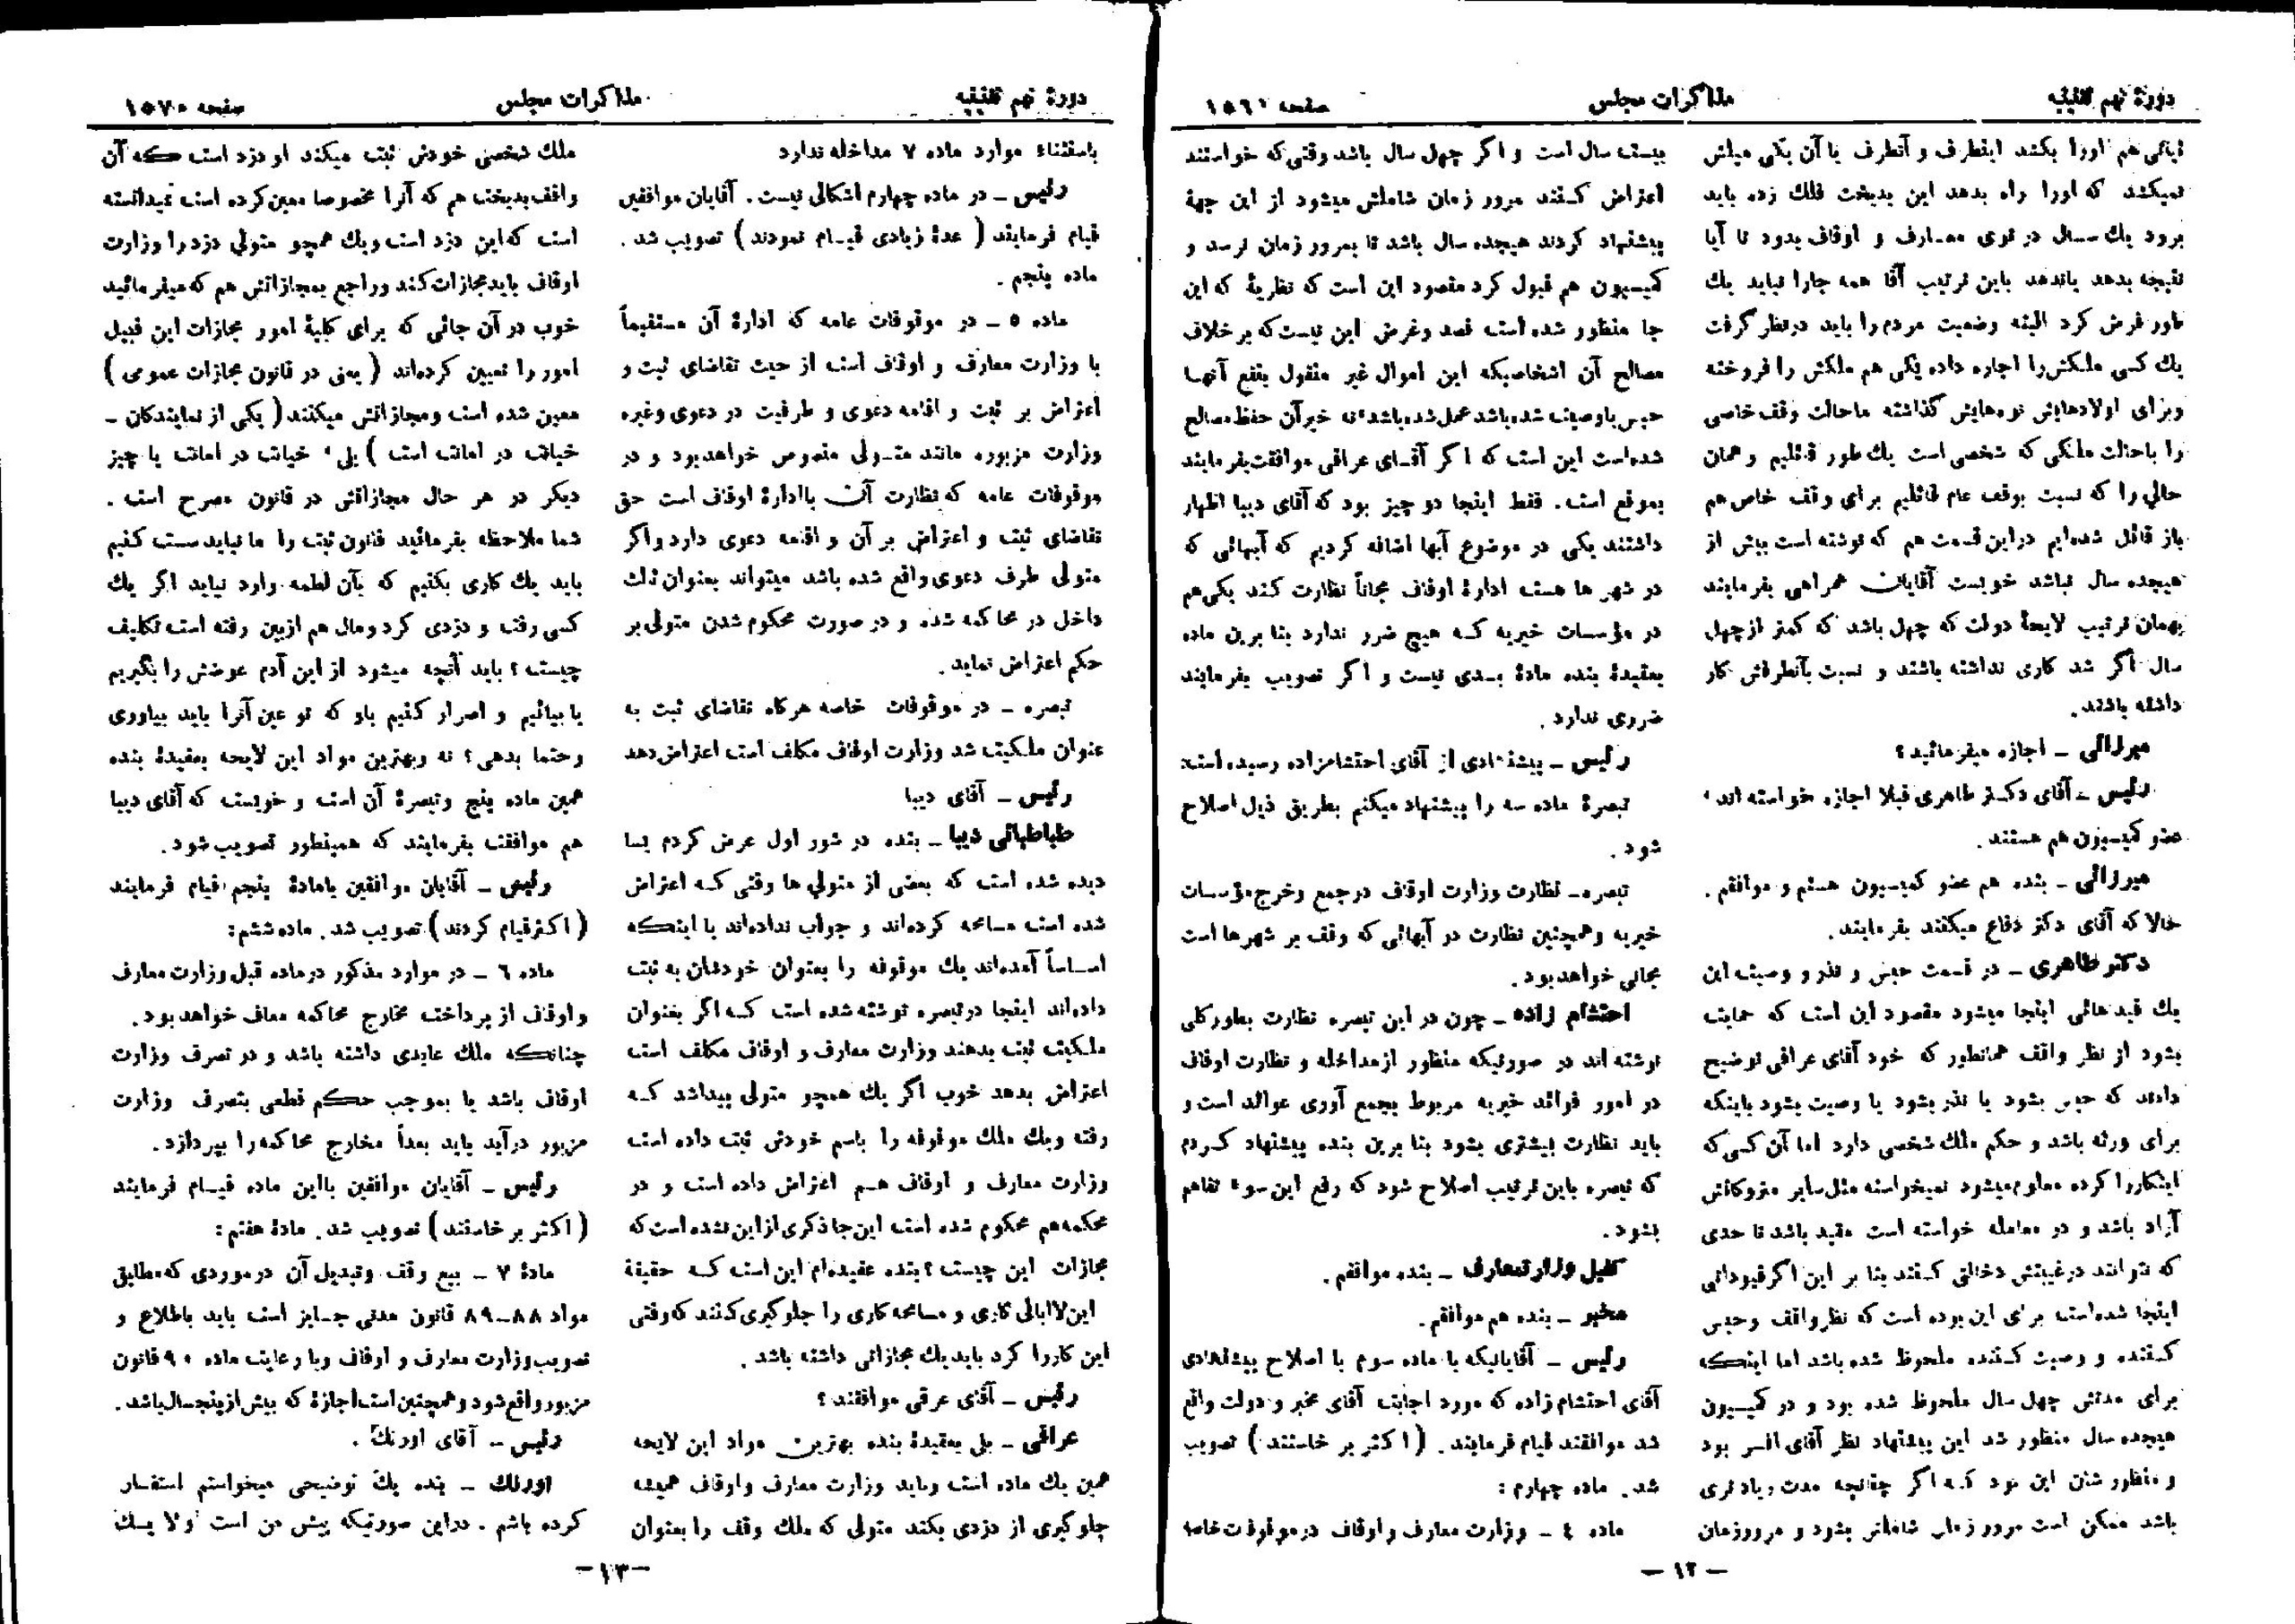 دورهٔ نهم تقنینیه
مذاکرات مجلس
صفحه ۱۵٦
ثبانی هم اورا بکشد اینطرف و آنطرف یا آن یکی میلش
نمیکشد که اورا راه بدهد این بدبخت فلك زده باید
برود یك سال در توی معارف و اوقاف بدود تا آیا
نتیجه بدهد یاندهد باین ترتیب آقا همه جارا نباید یك
طور فرض کرد البته وضعیت مردم را باید درنظر گرفت
یك کسی ملکش را اجاره داده یکی هم ملکش را فروخته
وبرای اولادهایش نوه‌هایش گذاشته ماحالت وقف خاصی
را باحالت ملکی که شخصی است یك طور قائلیم و همان
حالی را که نسبت بوقف عام قائلیم برای وقف خاص هم
باز قائل شده‌ایم دراین قسمت هم که نوشته است بیش از
هیجده سال نباشد خوبست آقایان همراهی بفرمایند
بهمان ترتیب لایحهٔ دولت که چهل باشد که کمتر از چهل
سال اگر شد کاری نداشته باشند و نسبت بآنطرفش کار
داشته باشند.
میرزائی ـ اجازه میفرمائید؟
رئیس ـ آقای دکتر طاهری قبلا اجازه خواسته اند،
عضو کمیسیون هم هستند.
میرزائی ـ بنده هم عضو کمیسیون هستم و موافقم.
حالا که آقای دکتر دفاع میکنند بفرمایند.
دکتر طاهری ـ در قسمت حبس و نذر و وصیت این
یك قیدهائی اینجا میشود مقصود این است که حمایت
بشود از نظر واقف همانطور که خود آقای عراقی توضیح
دادند که حبس بشود یا نذر بشود یا وصیت بشود باینکه
برای ورثه باشد و حکم ملك شخصی دارد اما آن کسی که
اینکاررا کرده معلوم میشود نمیخواسته مثل سایر متروکاتش
آزاد باشد و در معامله خواسته است مقید باشد تا حدی
که نتوانند درغیبتش دخالتی کنند بنا بر این اگر قیوداتی
اینجا شده است برای این بوده است که نظر واقف وحبس
کننده و وصیت کننده ملحوظ شده باشد اما اینکه
برای مدتش چهل سال ملحوظ شده بود و در کمیسیون
هیجده سال منظور شد این پیشنهاد نظر آقای افسر بود
و منظور شان این بود که اگر چنانچه مدت زیادتری
باشد ممکن است مرور زمان شاملش بشود و مرور زمان
بیست سال است و اگر چهل سال باشد وقتی که خواستند
اعتراض کنند مرور زمان شاملش میشود از این جهة
پیشنهاد کردند هیجده سال باشد تا بمرور زمان نرسد و
کمیسیون هم قبول کرد مقصود این است که نظریهٔ که این
جا منظور شده است قصد وغرض این نیست که بر خلاف
مصالح آن اشخاصیکه این اموال غیر منقول بنفع آنها
حبس یا وصیت شده باشد عمل شده باشد، نه خیر آن حفظ مصالح
شده است این است که اگر آقای عراقی موافقت بفرمایند
بموقع است. فقط اینجا دو چیز بود که آقای دیبا اظهار
داشتند یکی در موضوع آبها اضافه کردیم که آبهائی که
در شهر ها هست ادارهٔ اوقاف مجاناً نظارت کند یکی هم
در مؤسسات خیریه که هیچ ضرر ندارد بنا برین ماده
بعقیدهٔ بنده مادهٔ بدی نیست و اگر تصویب بفرمایند
ضرری ندارد.
رئیس ـ پیشنهادی از آقای احتشامزاده رسیده است:
تبصرهٔ ماده سه را پیشنهاد میکنم بطریق ذیل اصلاح
شود.
تبصره ـ نظارت وزارت اوقاف درجمع وخرج مؤسسات
خیریه وهمچنین نظارت در آبهائی که وقف بر شهرها است
مجانی خواهد بود.
احتشام زاده ـ چون در این تبصره نظارت بطور کلی
نوشته اند در صورتیکه منظور از مداخله و نظارت اوقاف
در امور فوائد خیریه مربوط بجمع آوری عوائد است و
باید نظارت بیشتری بشود بنا برین بنده پیشنهاد کردم
که تبصره باین ترتیب اصلاح شود که رفع این سوء تفاهم
بشود.
کفیل وزارتمعارف ـ بنده موافقم.
مخبر ـ بنده هم موافقم.
رئیس ـ آقایانیکه با ماده سوم با اصلاح پیشنهادی
آقای احتشام زاده که مورد اجابت آقای مخبر و دولت واقع
شد موافقند قیام فرمایند. (اکثر بر خاستند) تصویب
شد. ماده چهارم:
ماده ٤ ـ وزارت معارف و اوقاف در موقوفات خاصه
ـ ۱۲ ـ
دورهٔ نهم تقنینیه
مذاکرات مجلس
صفحه ۱۵۷۰
باستثناء موارد ماده ۷ مداخله ندارد
رئیس ـ در ماده چهارم اشکالی نیست. آقایان موافقین
قیام فرمایند (عدهٔ زیادی قیام نمودند) تصویب شد.
ماده پنجم.
ماده ۵ ـ در موقوفات عامه که ادارهٔ آن مستقیماً
با وزارت معارف و اوقاف است از حیث تقاضای ثبت و
اعتراض بر ثبت و اقامه دعوی و طرفیت در دعوی وغیره
وزارت مزبوره مانند متولی منصوص خواهد بود و در
موقوفات عامه که نظارت آن با ادارهٔ اوقاف است حق
تقاضای ثبت و اعتراض بر آن و اقامه دعوی دارد و اگر
متولی طرف دعوی واقع شده باشد میتواند بعنوان ثالث
داخل در محاکمه شده و در صورت محکوم شدن متولی بر
حکم اعتراض نماید.
تبصره ـ در موقوفات خاصه هرگاه تقاضای ثبت به
عنوان ملکیت شد وزارت اوقاف مکلف است اعتراض دهد
رئیس ـ آقای دیبا
طباطبائی دیبا ـ بنده در شور اول عرض کردم بسا
دیده شده است که بعضی از متولی ها وقتی که اعتراض
شده است مسامحه کرده‌اند و جواب نداده‌اند یا اینکه
اساساً آمده‌اند یك موقوفه را بعنوان خودشان به ثبت
داده‌اند اینجا درتبصره نوشته شده است که اگر بعنوان
ملکیت ثبت بدهند وزارت معارف و اوقاف مکلف است
اعتراض بدهد خوب اگر یك همچو متولی پیداشد که
رفته ویك ملك موقوفه را باسم خودش ثبت داده است
وزارت معارف و اوقاف هم اعتراض داده است و در
محکمه هم محکوم شده است این جا ذکری از این نشده است که
مجازات این چیست؟ بنده عقیده‌ام این است که حقیقة
این لاابالی کاری و مسامحه کاری را جلوگیری کنند که وقتی
این کاررا کرد باید یك مجازاتی داشته باشد.
رئیس ـ آقای عراقی موافقند؟
عراقی ـ بلی بعقیدهٔ بنده بهترین مواد این لایحه
همین یك ماده است وباید وزارت معارف واوقاف همیشه
جلوگیری از دزدی بکند متولی که ملك وقف را بعنوان
ملك شخصی خودش ثبت میکند او دزد است که آن
واقف بدبخت هم که آنرا مخصوصا معین کرده است نمیدانسته
است که این دزد است و یك همچو متولی دزد را وزارت
اوقاف باید مجازات کند و راجع بمجازاتش هم که میفرمائید
خوب در آن جائی که برای کلیهٔ امور مجازات این قبیل
امور را تعیین کرده‌اند (یعنی در قانون مجازات عمومی)
معین شده است ومجازاتش میکنند (یکی از نمایندگان ـ
خیانت در امانت است) بلی، خیانت در امانت یا چیز
دیگر در هر حال مجازاتش در قانون مصرح است.
شما ملاحظه بفرمائید قانون ثبت را ما نباید سست کنیم
باید یك کاری بکنیم که بآن لطمه وارد نیاید اگر یك
کسی رفت و دزدی کرد ومال هم ازبین رفته است تکلیف
چیست؟ باید آنچه میشود از این آدم عوضش را بگیریم
یا بیائیم و اصرار کنیم باو که تو عین آنرا باید بیاوری
وحتما بدهی؟ نه وبهترین مواد این لایحه بعقیدهٔ بنده
همین ماده پنج وتبصرهٔ آن است و خوبست که آقای دیبا
هم موافقت بفرمایند که همینطور تصویب شود.
رئیس ـ آقایان موافقین بامادهٔ پنجم قیام فرمایند
(اکثر قیام کردند) تصویب شد. ماده ششم:
ماده ٦ ـ در موارد مذکور درماده قبل وزارت معارف
و اوقاف از پرداخت مخارج محاکمه معاف خواهد بود.
چنانکه ملك عایدی داشته باشد و در تصرف وزارت
اوقاف باشد یا بموجب حکم قطعی بتصرف وزارت
مزبور درآید باید بعداً مخارج محاکمه را بپردازد.
رئیس ـ آقایان موافقین بااین ماده قیام فرمایند
(اکثر بر خاستند) تصویب شد. مادهٔ هفتم:
مادهٔ ۷ ـ بیع وقف وتبدیل آن درموردی که مطابق
مواد ۸۸ـ۸۹ قانون مدنی جایز است باید باطلاع و
تصویب وزارت معارف و اوقاف وبا رعایت ماده ۹۰ قانون
مزبور واقع شود و همچنین است اجازهٔ که بیش از پنجسال باشد.
رئیس ـ آقای اورنك.
اورنك ـ بنده یك توضیحی میخواستم استفسار
کرده باشم. دراین صورتیکه پیش من است اولا یك
ـ ۱۳ ـ